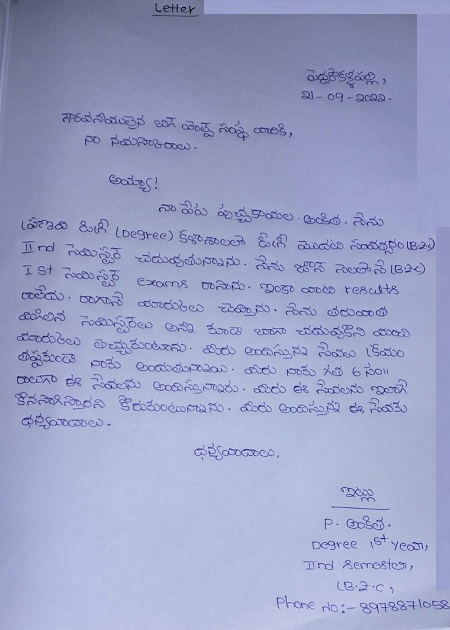 Letter
పెద్దకాకళ్ళపల్లి,
21-09-2022.
గౌరవనీయులైన బాగ్ హెల్ప్ సంస్థ వారికి,
నా నమస్కారాలు.
అయ్యా!
నా పేరు పుచ్చకాయల. అంకిత. నేను
ప్రగతి డిగ్రీ (Degree) కళాశాలలో డిగ్రీ మొదటి సంవత్సరం (B.Z.C)
IInd సెమిస్టర్ చదువుతున్నాను. నేను జూన్ నెలలోనే (BZC)
Ist సెమిస్టర్ exams రాసాను. ఇంకా వాటి results
రాలేదు. రాగానే మార్కులు చెప్తాను. నేను తరువాత
మిగిలిన సెమిస్టర్‌లు అన్ని కూడా బాగా చదువుకొని మంచి
మార్కులు తెచ్చుకుంటాను. మీరు అందిస్తున్న సేవలు క్రమం
తప్పకుండా నాకు అందుతున్నాయి. మీరు నాకు గత 6 సం॥
రాలుగా ఈ సేవలను అందిస్తున్నారు. మీరు ఈ సేవలను ఇలాగే
కొనసాగిస్తారని కోరుకుంటున్నాను. మీరు అందిస్తున్న ఈ సేవకు
ధన్యవాదాలు.
ధన్యవాదాలు,
ఇట్లు
P. అంకిత.
Degree 1st Year,
IInd Semester,
(B.Z.C,
Phone no:-8978871058